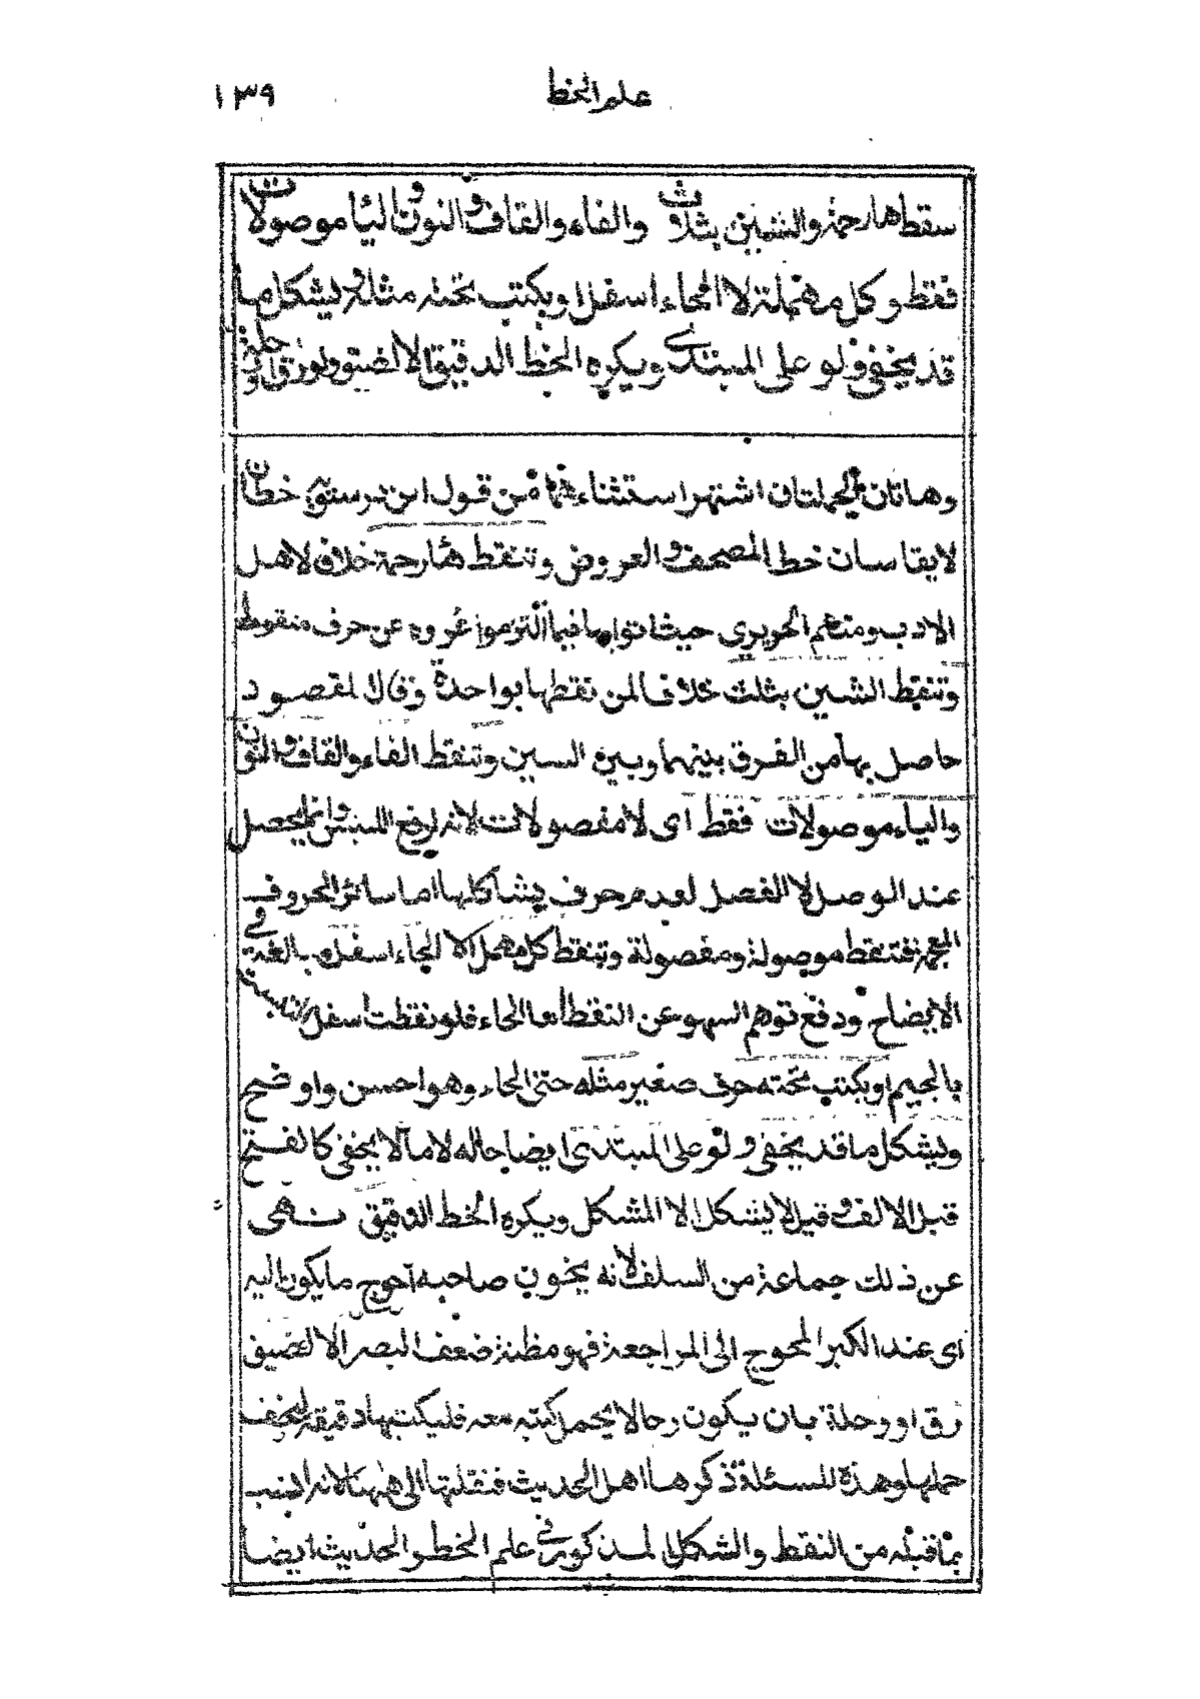 علم الخط
١٣٩
سقط هاء رحمة والشين بثلاث والفاء والقاف والنون واليا موصولات
فقط وكل مهملة لا الحاء اسفل او يكتب تحته مثاله ويشكل ما
قد يخفى ولو على المبتدى ويكره الخط الدقيق الا لضيق ورق او رحلة
وهاتان الجملتان اشتهر استثناءهما من قول ابن درستويه خطان
لا يقاسان خط المصحف والعروض وتنقط هاء رحمة خلاف لاهل
الادب ومنهم الحريرى حيث اتوا بها فيما التزموا عروه عن حرف منقوط
وتنقط الشين بثلث خلافا لمن نقطها بواحدة وقال المقصود
حاصل بها من الفرق بينهما وبين السين وتنقط الفاء والقاف والنون
والياء موصولات فقط اى لا مفصولات لانه لرفع اللبس وانما يحصل
عند الوصل لا الفصل لعدم حروف يشاكلها اما سائر الحروف
المعجمة فتنقط موصولة ومفصولة وتنقط كل مهمل الا الحاء اسفل مبالغة في
الايضاح ودفع توهم السهو عن النقط اما الحاء فلو نقطت اسفل
بالجيم او يكتب تحته حرف صغير مثله حتى الحاء وهو احسن واوضح
ويشكل ما قد يخفى ولو على المبتدى ايضا حاله لا مالا يخفى كالفتح
قبل الالف وقيل لا يشكل الا المشكل ويكره الخط الدقيق نهى
عن ذلك جماعة من السلف لانه يخون صاحبه احوج ما يكون اليه
اى عند الكبر المحوج الى المراجعة فهو مظنة ضعف البصر الا لضيق
رق او رحلة بان يكون رحالا يحمل كتبه معه فليكتبها دقيقة ليخف
حملها وهذه المسئلة ذكرها اهل الحديث فنقلتها الى ههنا لانه انسب
بما قبله من النقط والشكل المذكور في علم الخط والحديث ايضا